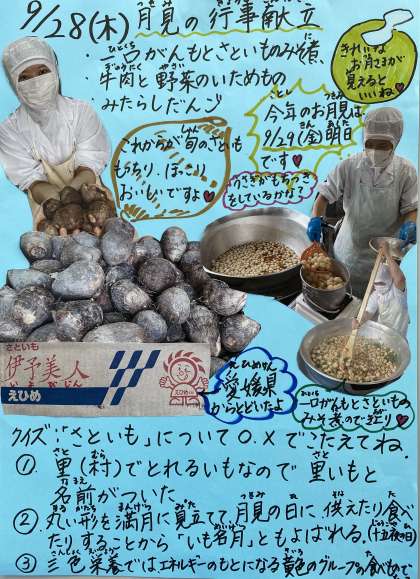 9/28(木)月見の行事献立
・一口がんもとさといものみそ煮
・牛肉と野菜のいためもの
・みたらしだんご
きれいな
お月さまが
見えると
いいね♥
今年のお月見は
9/29(金)明日
です♥
これからが旬のさといも
もっちり、ほっこり
おいしいですよ♥
うさぎがもちつき
をしているかな?
さといも
伊予美人
いよびじん
えひめ
愛媛県
からとどいたよ
一口がんもとさといもの
みそ煮のでき上り♥
クイズ:「さといも」について○.×でこたえてね
① 里(村)でとれるいもなので 里いもと
名前がついた
② 丸い形を満月に見立てて月見の日に供えたり食べ
たりすることから「いも名月」ともよばれる。(十五夜の日)
③ 三色栄養ではエネルギーのもとになる黄色のグループの食べもので